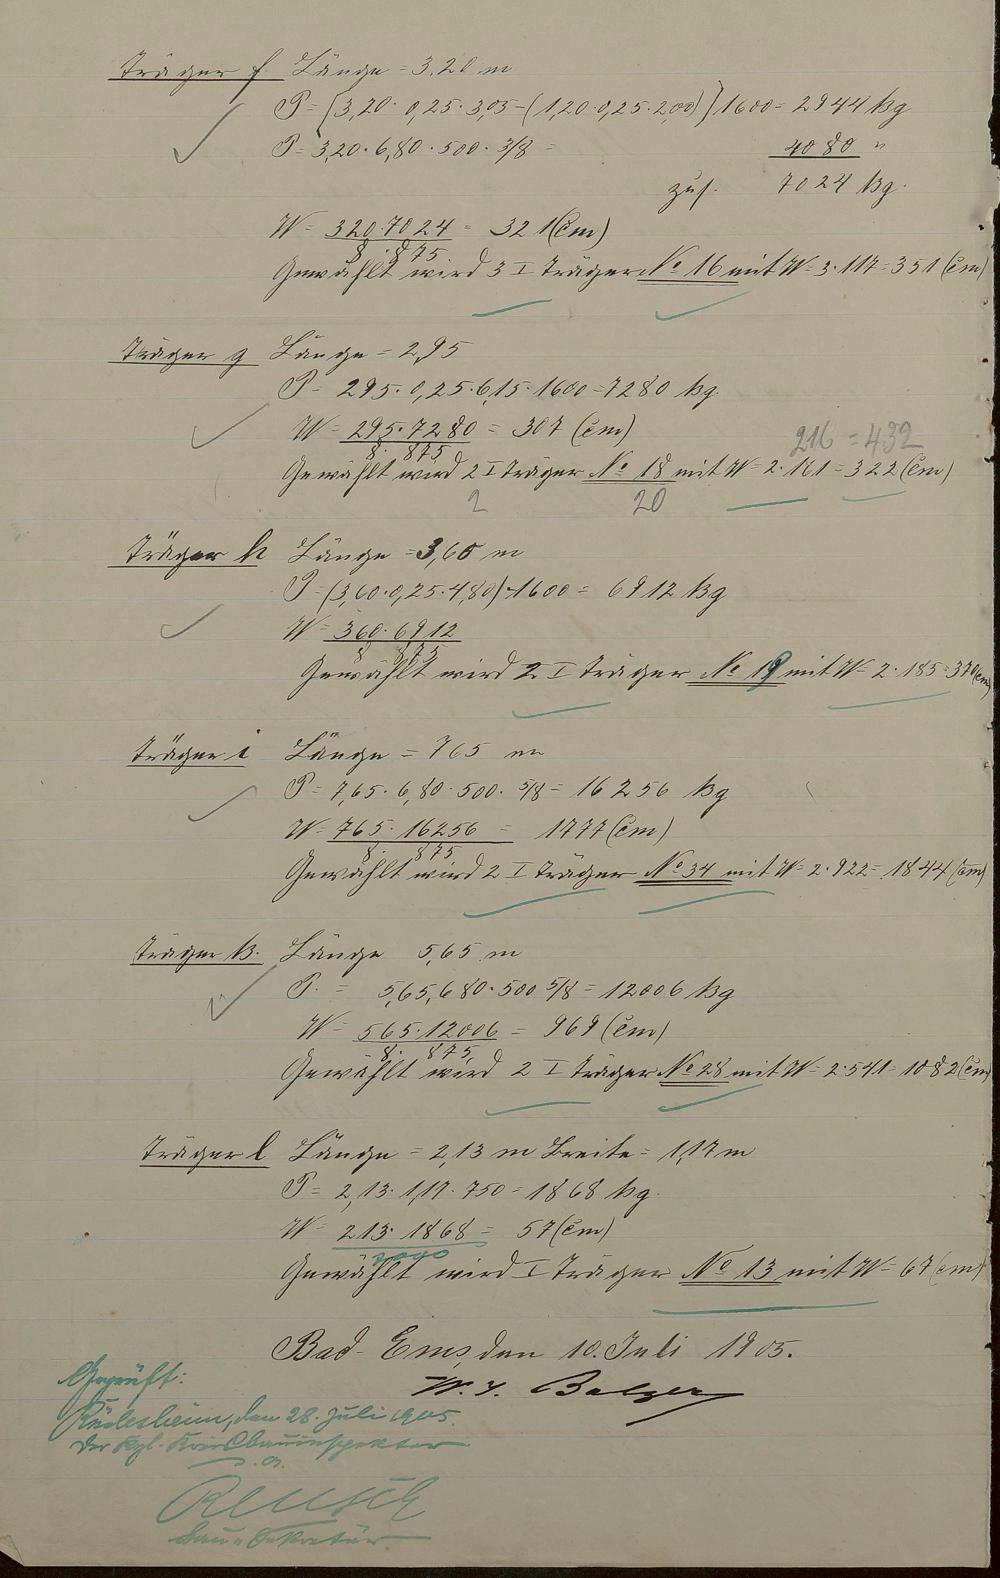 Träger f Länge = 3,20 m
P = [3,20 · 0,25 · 3,05 - (1,20 · 0,25 · 2,00)] 1600 = 2944 kg
P = 3,20 · 6,80 · 500 · 3/8 = 4080 "
zus. 7024 kg.
W = 320 · 7024 = 321 (cm)
8 · 875
Gewählt wird 3 I Träger No 16 mit W = 3 · 117 = 351 (cm)
Träger g Länge = 2,95
P = 295 · 0,25 · 6,15 · 1600 = 7280 kg.
W = 295 · 7280 = 307 (cm)
8 · 875
216 = 432
Gewählt wird 2 I Träger No 18 mit W = 2 · 161 = 322 (cm)
2 20
Träger h Länge = 3,60 m
P = (3,60 · 0,25 · 4,80) · 1600 = 6912 kg
W = 360 · 6912
8 875
Gewählt wird 2 I Träger No 19 mit W = 2 · 185 = 370 (cm)
Träger i Länge = 765 m
P = 7,65 · 6,80 · 500 · 5/8 = 16256 kg
W = 765 · 16256 = 1777 (cm)
8 · 875
Gewählt wird 2 I Träger No 34 mit W = 2 · 922 = 1844 (cm)
Träger k. Länge 5,65 m
P. = 5,65, 680 · 500 5/8 = 12006 kg
W = 565 · 12006 = 969 (cm)
8 · 875
Gewählt wird 2 I Träger No 28 mit W = 2 · 541 = 1082 (cm)
Träger l Länge = 2,13 m Breite = 1,17 m
P = 2,13 · 1,17 · 750 = 1868 kg.
W = 213 · 1868 = 57 (cm)
7000
Gewählt wird I Träger No 13 mit W = 67 (cm)
Bad-Ems, den 10. Juli 1905.
W. Balzer
Geprüft:
Rüdesheim, den 28. Juli 1905.
Der Kgl. Kreisbauinspektor
Reusch
Bau-Sekretär.